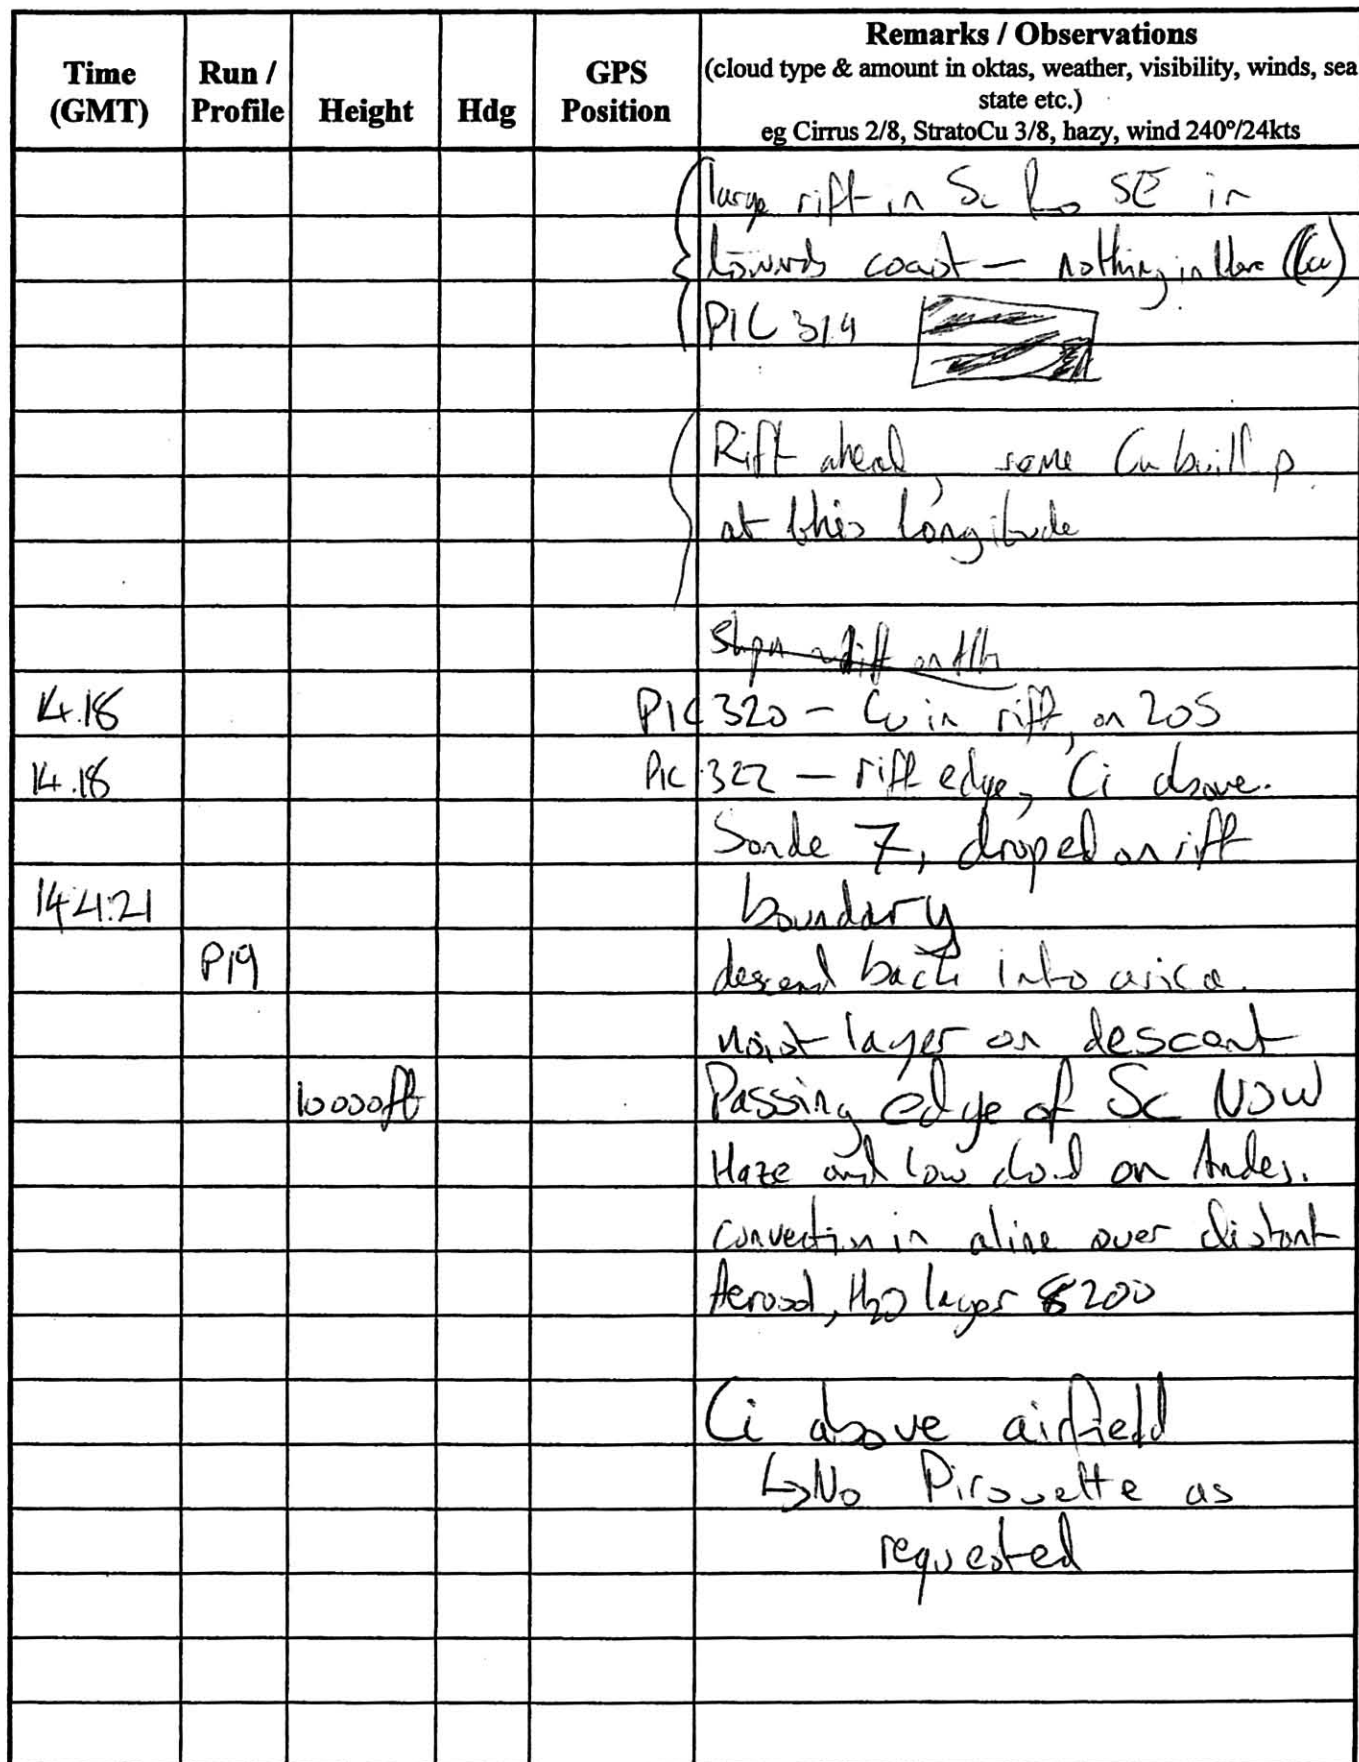 Time (GMT) Run / Profile Height Hdg GPS Position Remarks / Observations
(cloud type & amount in oktas, weather, visibility, winds, sea state etc.)
eg Cirrus 2/8, StratoCu 3/8, hazy, wind 240°/24kts
large rift in Sc to SE in
towards coast — nothing in there (Cu)
PIC 319
Rift ahead, some Cu build p
at this longitude
14.18 PIC 320 - Cu in rift, on 20S
14.18 PIC 322 — rift edge, Ci above.
Sonde 7, droped on rift
boundary
P19 descend back into arica.
moist layer on descent
10000ft Passing edge of Sc NOW
Haze and low cloud on Andes.
convection in a line over distant
Aerosol, H2O layer 8200
Ci above airfield
↳No Pirouette as
requested